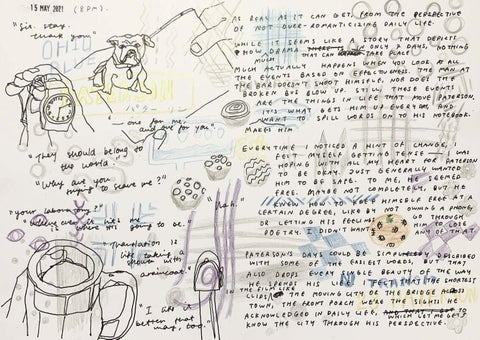 15 MAY 2021 (8PM).
"Sit. stay.
thank you"
OHIO
one for me,
and one for you"
"They should belong to
the world."
"Why are you
trying to leave me?"
"your laboratory?"
where it's going to be.
"Translation is
like taking a
shower with
a raincoat."
"I like it
better that
way, too."
"Nah."
AS REAL AS IT CAN GET, FROM THE PERSPECTIVE
OF NOT OVER-ROMANTICIZING DAILY LIFE.
WHILE IT SEEMS LIKE A STORY THAT DEPICTS
HOW DRAMA IN ONLY 7 DAYS, NOTHING
THAT CAN TAKE PLACE
MUCH ACTUALLY HAPPENS WHEN YOU LOOK AT ALL
THE EVENTS BASED ON EFFECTIVENESS. THE MAN AT
THE BAR DOESN'T SHOOT HIMSELF, NOR DOES THE
BROKEN BUS BLOW UP. STILL, THESE EVENTS
ARE THE THINGS IN LIFE THAT MOVE PATERSON,
IT'S WHAT GETS HIM UP EVERYDAY, AND
WANT TO SPILL WORDS ON TO HIS NOTEBOOK.
MAKES HIM
EVERYTIME I NOTICED A HINT OF CHANGE, I
FELT MYSELF GETTING TENSE — I WAS
HOPING WITH ALL MY HEART FOR PATERSON
TO BE OKAY. JUST GENERALLY WANTED
HIM TO BE SAFE. TO ME, HE SEEMED
FREE. MAYBE NOT COMPLETELY, BUT HE
KNEW HOW TO KEEP HIMSELF FREE AT A
CERTAIN DEGREE, LIKE BY NOT OWNING A PHONE,
OR LETTING HIS FEELINGS GO THROUGH
POETRY. I DIDN'T WANT HIM TO LOSE
ANY OF THAT.
PATERSON'S DAYS COULD BE SIMPLY DESCRIBED
WITH SOME OF THE EASIEST WORDS, BUT THAT
ALSO DROPS EVERY SINGLE BEAUTY OF THE WAY
HE SPENDS HIS LIFE. THE SHORTEST
IN THE FILM LIKE
CLIPS OF THE MOVING CITY OR THE BRIDGE ACROSS
TOWN, THE FRONT PORCH WE'RE THE SIGHTS HE
ACKNOWLEDGED IN DAILY LIFE, AND THAT GOT TO
WHICH LET ME GET
KNOW THE CITY THROUGH HIS PERSPECTIVE.